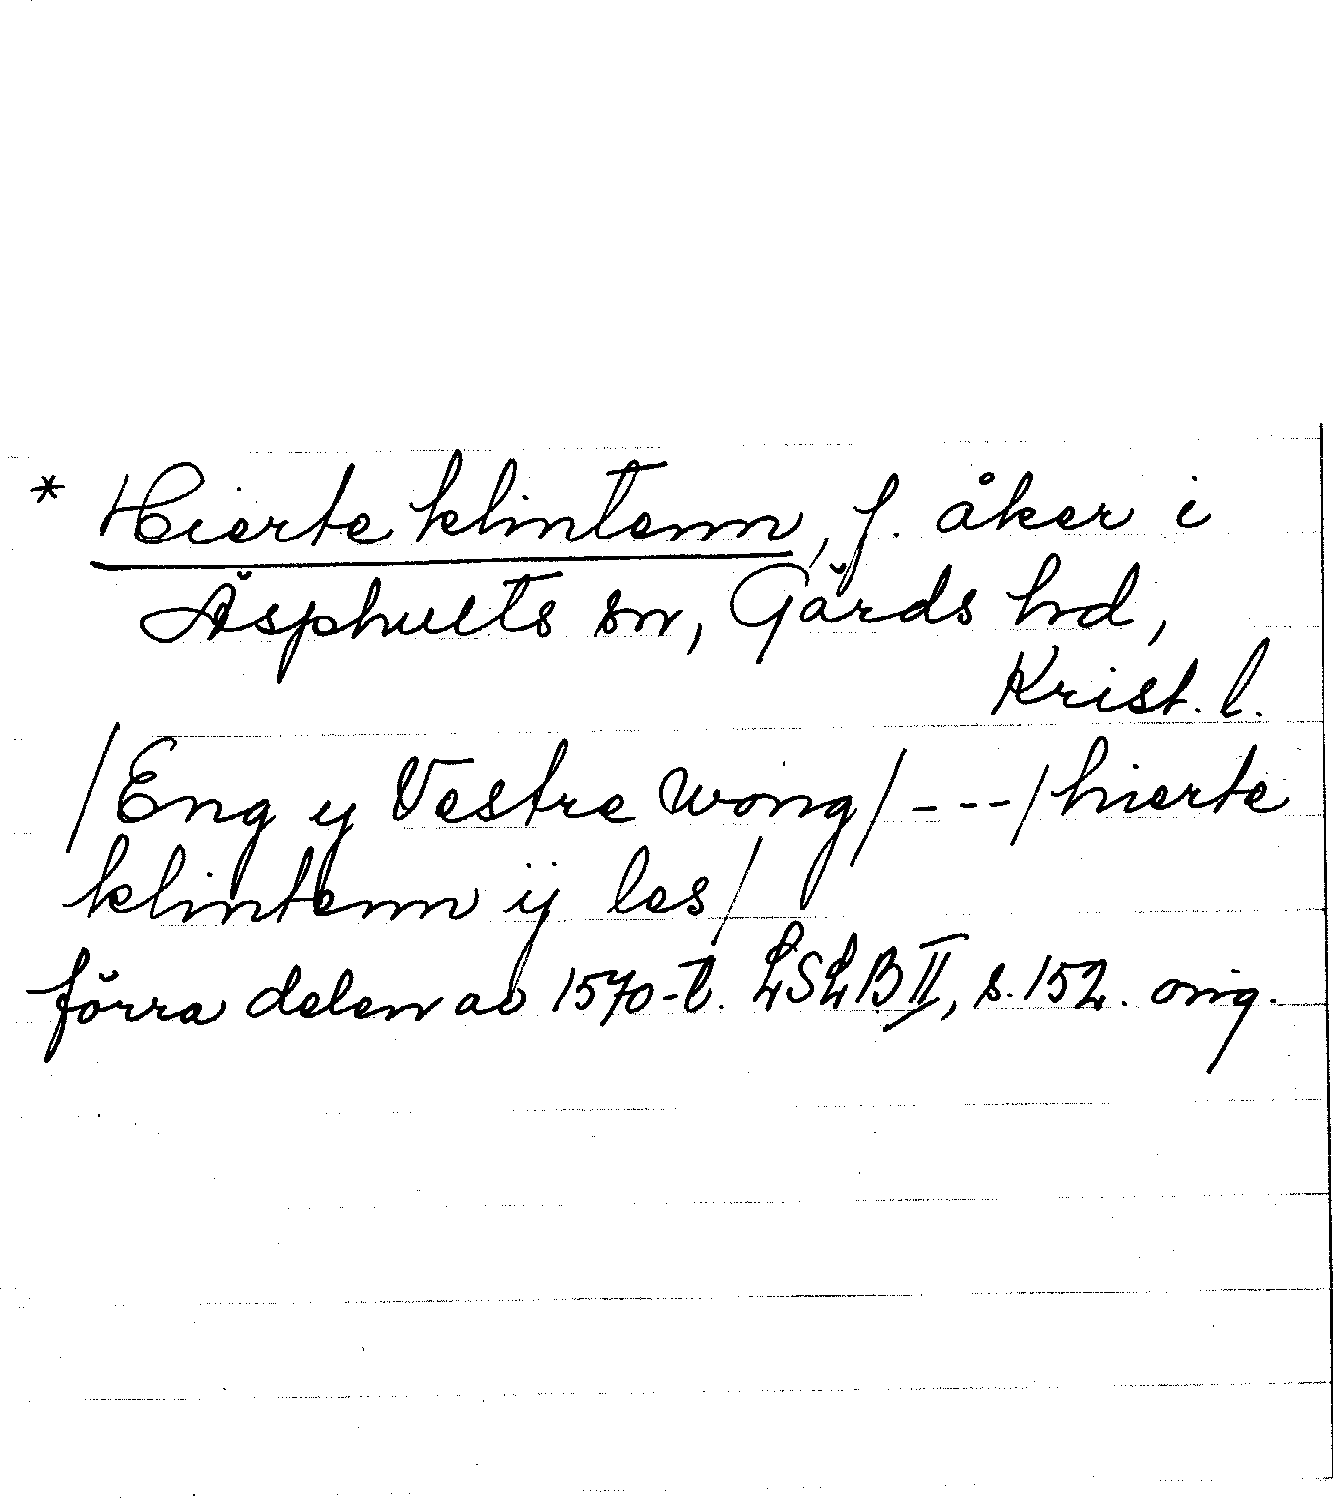 * Hierte klintenn, f. åker i
Äsphults sn, Gärds hd,
Krist. l.
/Eng y Vestre Wong/ - - - /hierte
klintenn ij les/
förra delen av 1570-t. LSLB II, s. 152. orig.